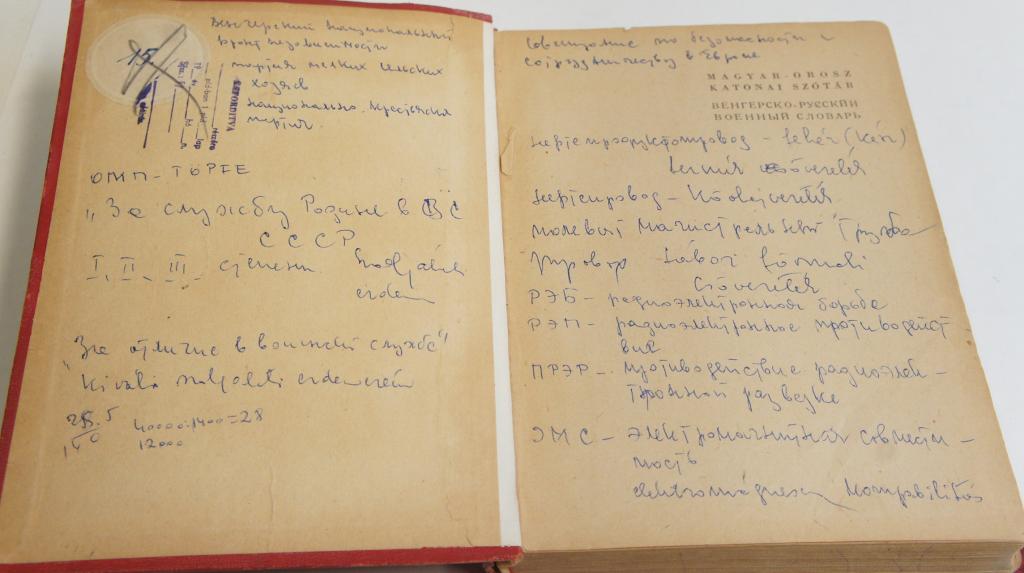 Венгерский национальный
фронт независимости
партия мелких сельских
хозяев
национально-крестьянская
партия
15
LEFORDÍTVA
ОМП - TÖPFE
„За службу Родине в ВС
СССР
I, II, III степени.
érdem
„За отличие в воинской службе"
Kiváló szolgálati érdemérem
40000:1400=28
12000
Совещание по безопасности и
сотрудничеству в Европе
MAGYAR-OROSZ
KATONAI SZÓTÁR
ВЕНГЕРСКО-РУССКИЙ
ВОЕННЫЙ СЛОВАРЬ
нефтепродуктопровод - fehér (kész)
termék csővezeték
нефтепровод - Kőolajvezeték
полевой магистральный трубо
провод tábori fővonali
Csővezeték
РЭБ - радиоэлектронная борьба
РЭП - радиоэлектронное противодейст-
вие
ПРЭР - противодействие радиоэлек-
тронной разведке
ЭМС - электромагнитная совмести-
мость
elektromágneses kompabilitás